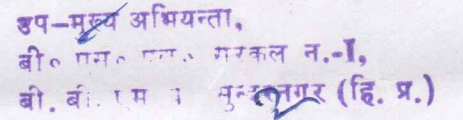 उप-मुख्य अभियन्ता,
बी० एस० एल० सरकल न.-I,
बी. बी. एम सुन्दरनगर (हि. प्र.)